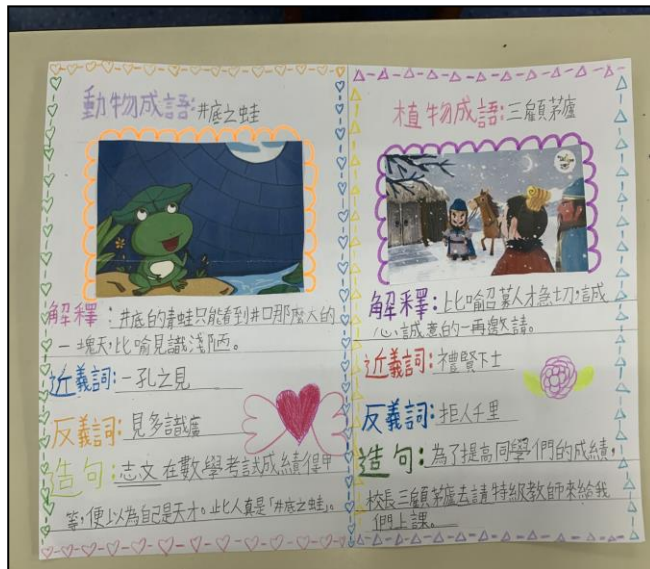 動物成語:井底之蛙
解釋:井底的青蛙只能看到井口那麼大的
一塊天,比喻見識淺陋。
近義詞:一孔之見
反義詞:見多識廣
造句:志文在數學考試成績得甲
等,便以為自己是天才。此人真是「井底之蛙」。
植物成語:三顧茅廬
解釋:比喻招募人才急切,誠
心誠意的一再邀請。
近義詞:禮賢下士
反義詞:拒人千里
造句:為了提高同學們的成績,
校長三顧茅廬去請特級教師來給我
們上課。